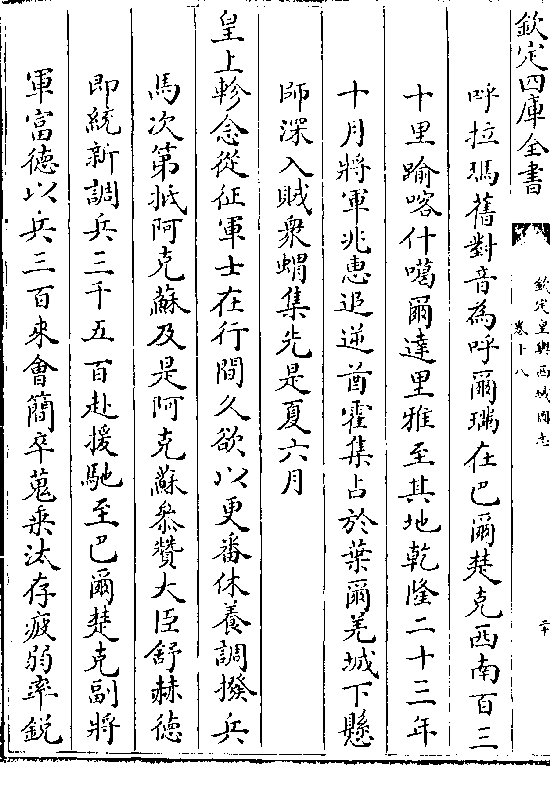 欽定四庫全書
欽定皇輿西域圖志
卷十八
二十
呼拉瑪舊對音為呼爾璊在巴爾楚克西南百三
十里踰喀什噶爾達里雅至其地乾隆二十三年
十月將軍兆惠追逆酋霍集占於葉爾羌城下懸
師深入賊衆蝟集先是夏六月
皇上軫念從征軍士在行間久欲以更番休養調撥兵
馬次第抵阿克蘇及是阿克蘇叅贊大臣舒赫德
即統新調兵三千五百赴援馳至巴爾楚克副將
軍富德以兵三百來會簡卒蒐乘汰存疲弱率銳